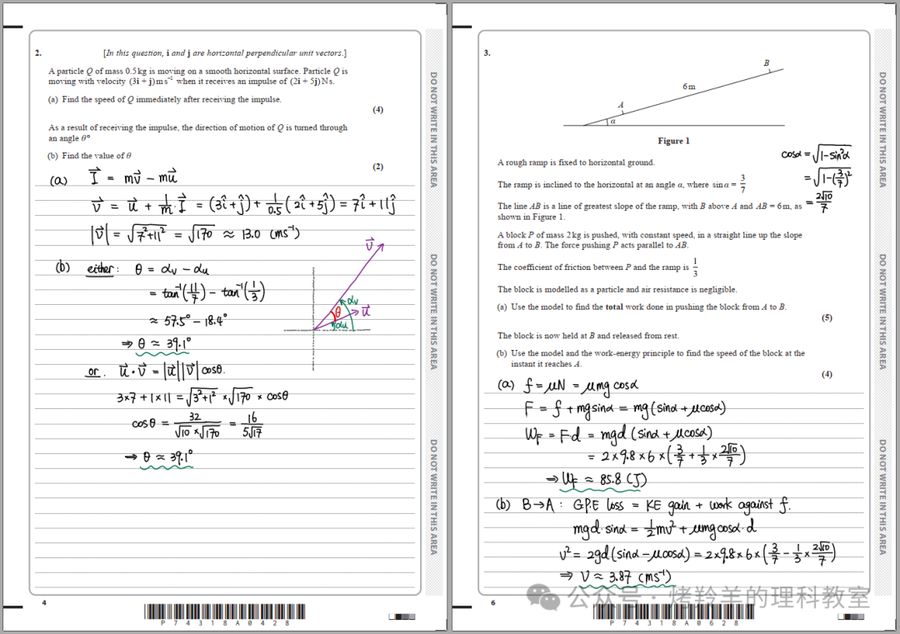 2.
[In this question, i and j are horizontal perpendicular unit vectors.]
A particle Q of mass 0.5 kg is moving on a smooth horizontal surface. Particle Q is
moving with velocity (3i + j) m s⁻¹ when it receives an impulse of (2i + 5j) N s.
(a) Find the speed of Q immediately after receiving the impulse.
(4)
As a result of receiving the impulse, the direction of motion of Q is turned through
an angle θ°
(b) Find the value of θ
(2)
(a) I⃗ = mv⃗ − mu⃗
v⃗ = u⃗ + 1/m · I⃗ = (3î + ĵ) + 1/0.5 (2î + 5ĵ) = 7î + 11ĵ
|v⃗| = √(7² + 11²) = √170 ≈ 13.0 (ms⁻¹)
(b) either: θ = αv − αu
= tan⁻¹(11/7) − tan⁻¹(1/3)
≈ 57.5° − 18.4°
⇒ θ ≈ 39.1°
or. u⃗ · v⃗ = |u⃗||v⃗| cosθ.
3×7 + 1×11 = √(3²+1²) × √170 × cosθ
cosθ = 32/(√10 × √170) = 16/(5√17)
⇒ θ ≈ 39.1°
v⃗
αv
θ
u⃗
αu
DO NOT WRITE IN THIS AREA
DO NOT WRITE IN THIS AREA
DO NOT WRITE IN THIS AREA
4
P74318A0428
3.
B
6 m
A
α
Figure 1
A rough ramp is fixed to horizontal ground.
The ramp is inclined to the horizontal at an angle α, where sin α = 3/7
The line AB is a line of greatest slope of the ramp, with B above A and AB = 6 m, as
shown in Figure 1.
cosα = √(1−sin²α)
= √(1−(3/7)²)
= 2√10/7
A block P of mass 2 kg is pushed, with constant speed, in a straight line up the slope
from A to B. The force pushing P acts parallel to AB.
The coefficient of friction between P and the ramp is 1/3
The block is modelled as a particle and air resistance is negligible.
(a) Use the model to find the total work done in pushing the block from A to B.
(5)
The block is now held at B and released from rest.
(b) Use the model and the work-energy principle to find the speed of the block at the
instant it reaches A.
(4)
(a) f = μN = μmg cosα
F = f + mg sinα = mg (sinα + μcosα)
W_F = Fd = mgd (sinα + μcosα)
= 2×9.8×6×(3/7 + 1/3 × 2√10/7)
⇒ W_F ≈ 85.8 (J)
(b) B→A: G.P.E loss = KE gain + work against f.
mgd·sinα = ½mv² + μmg cosα·d
v² = 2gd (sinα − μcosα) = 2×9.8×6×(3/7 − 1/3 × 2√10/7)
⇒ v ≈ 3.87 (ms⁻¹)
DO NOT WRITE IN THIS AREA
DO NOT WRITE IN THIS AREA
DO NOT WRITE IN THIS AREA
6
P74318A0628
公众号 · 烤羚羊的理科教室